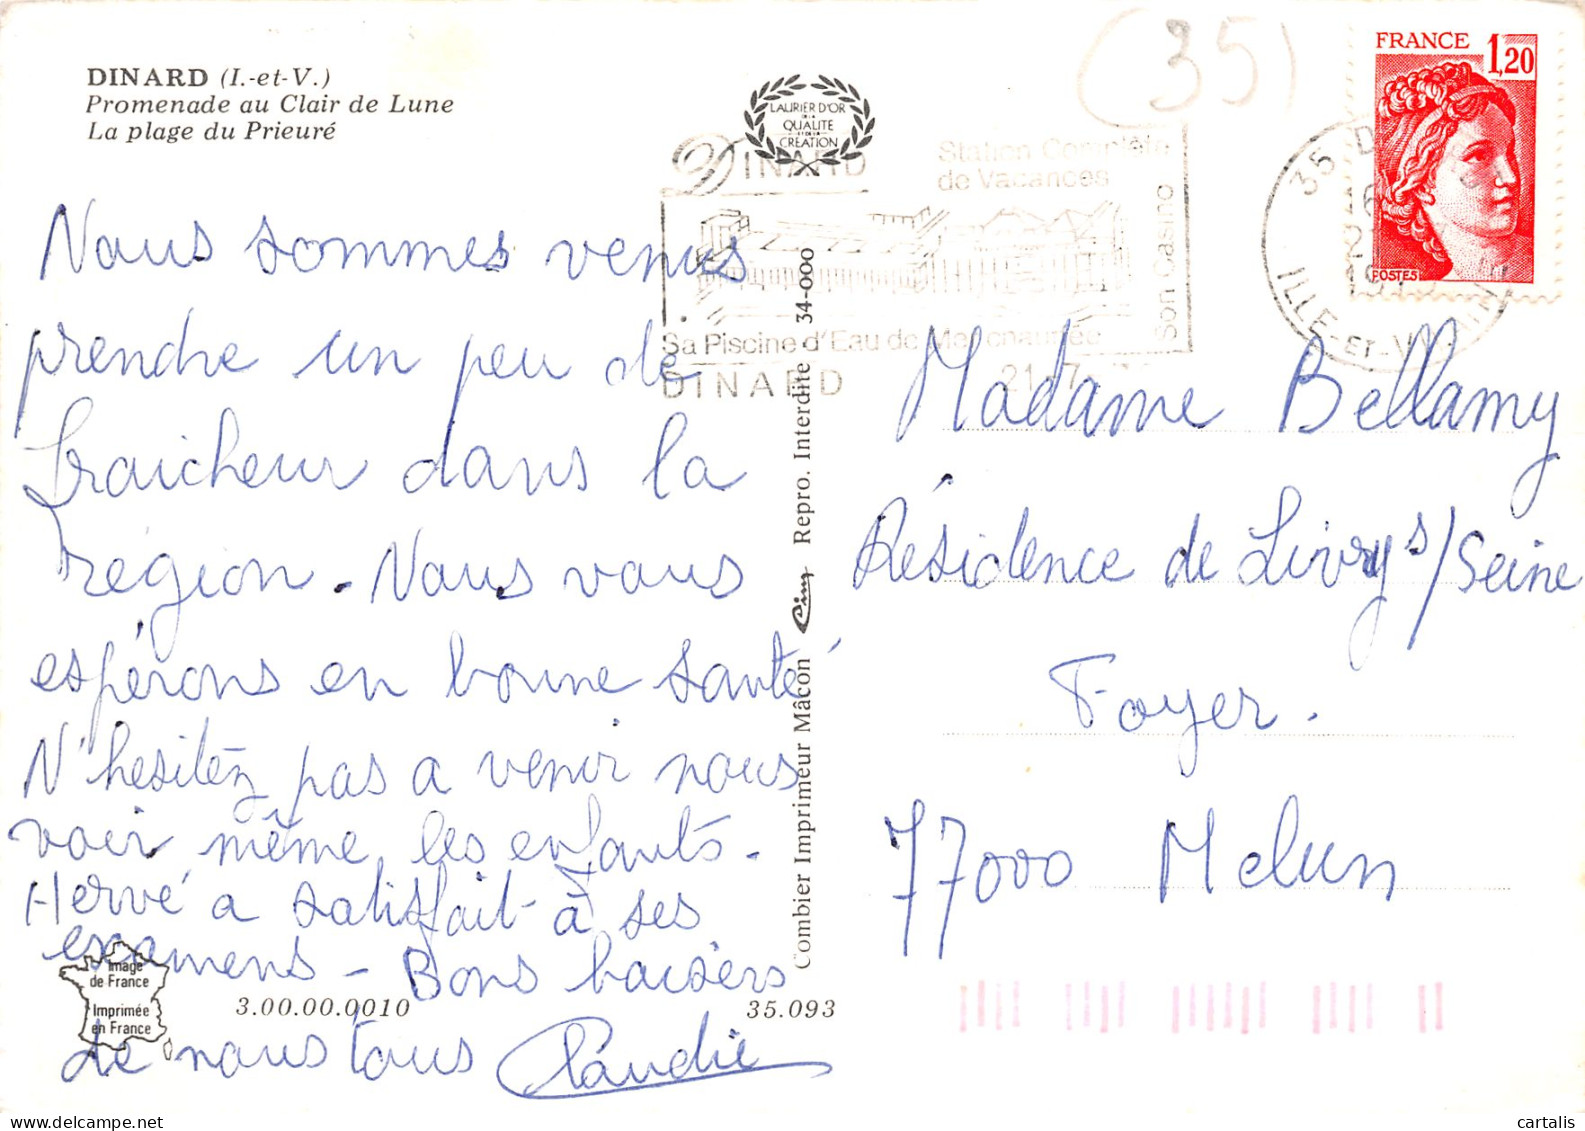 DINARD (I.-et-V.)
Promenade au Clair de Lune
La plage du Prieuré
Nous sommes venus
prendre un peu de
fraicheur dans la
région. Nous vous
espérons en bonne santé
N'hesitez pas a venir nous
voir même les enfants.
Hervé a satisfait à ses
examens - Bons baisers
de nous tous Claudie
Image
de France
Imprimée
en France
3.00.00.0010
35.093
Combier Imprimeur Mâcon Cim Repro. Interdite 34-000
LAURIER D'OR
DE LA
QUALITE
ET DE LA
CREATION
DINARD
Station Complète
de Vacances
Son Casino
Sa Piscine d'Eau de Mer chauffée
DINARD
(35)
FRANCE 1,20
POSTES
35
ILLE-ET-VILAINE
Madame Bellamy
Résidence de Livry s/Seine
Foyer.
77000 Melun
cartalis
www.delcampe.net